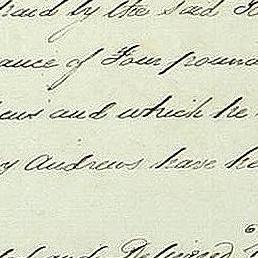 paid by the said
ance of Four pound
and which he
Andrews have he
and Delivered